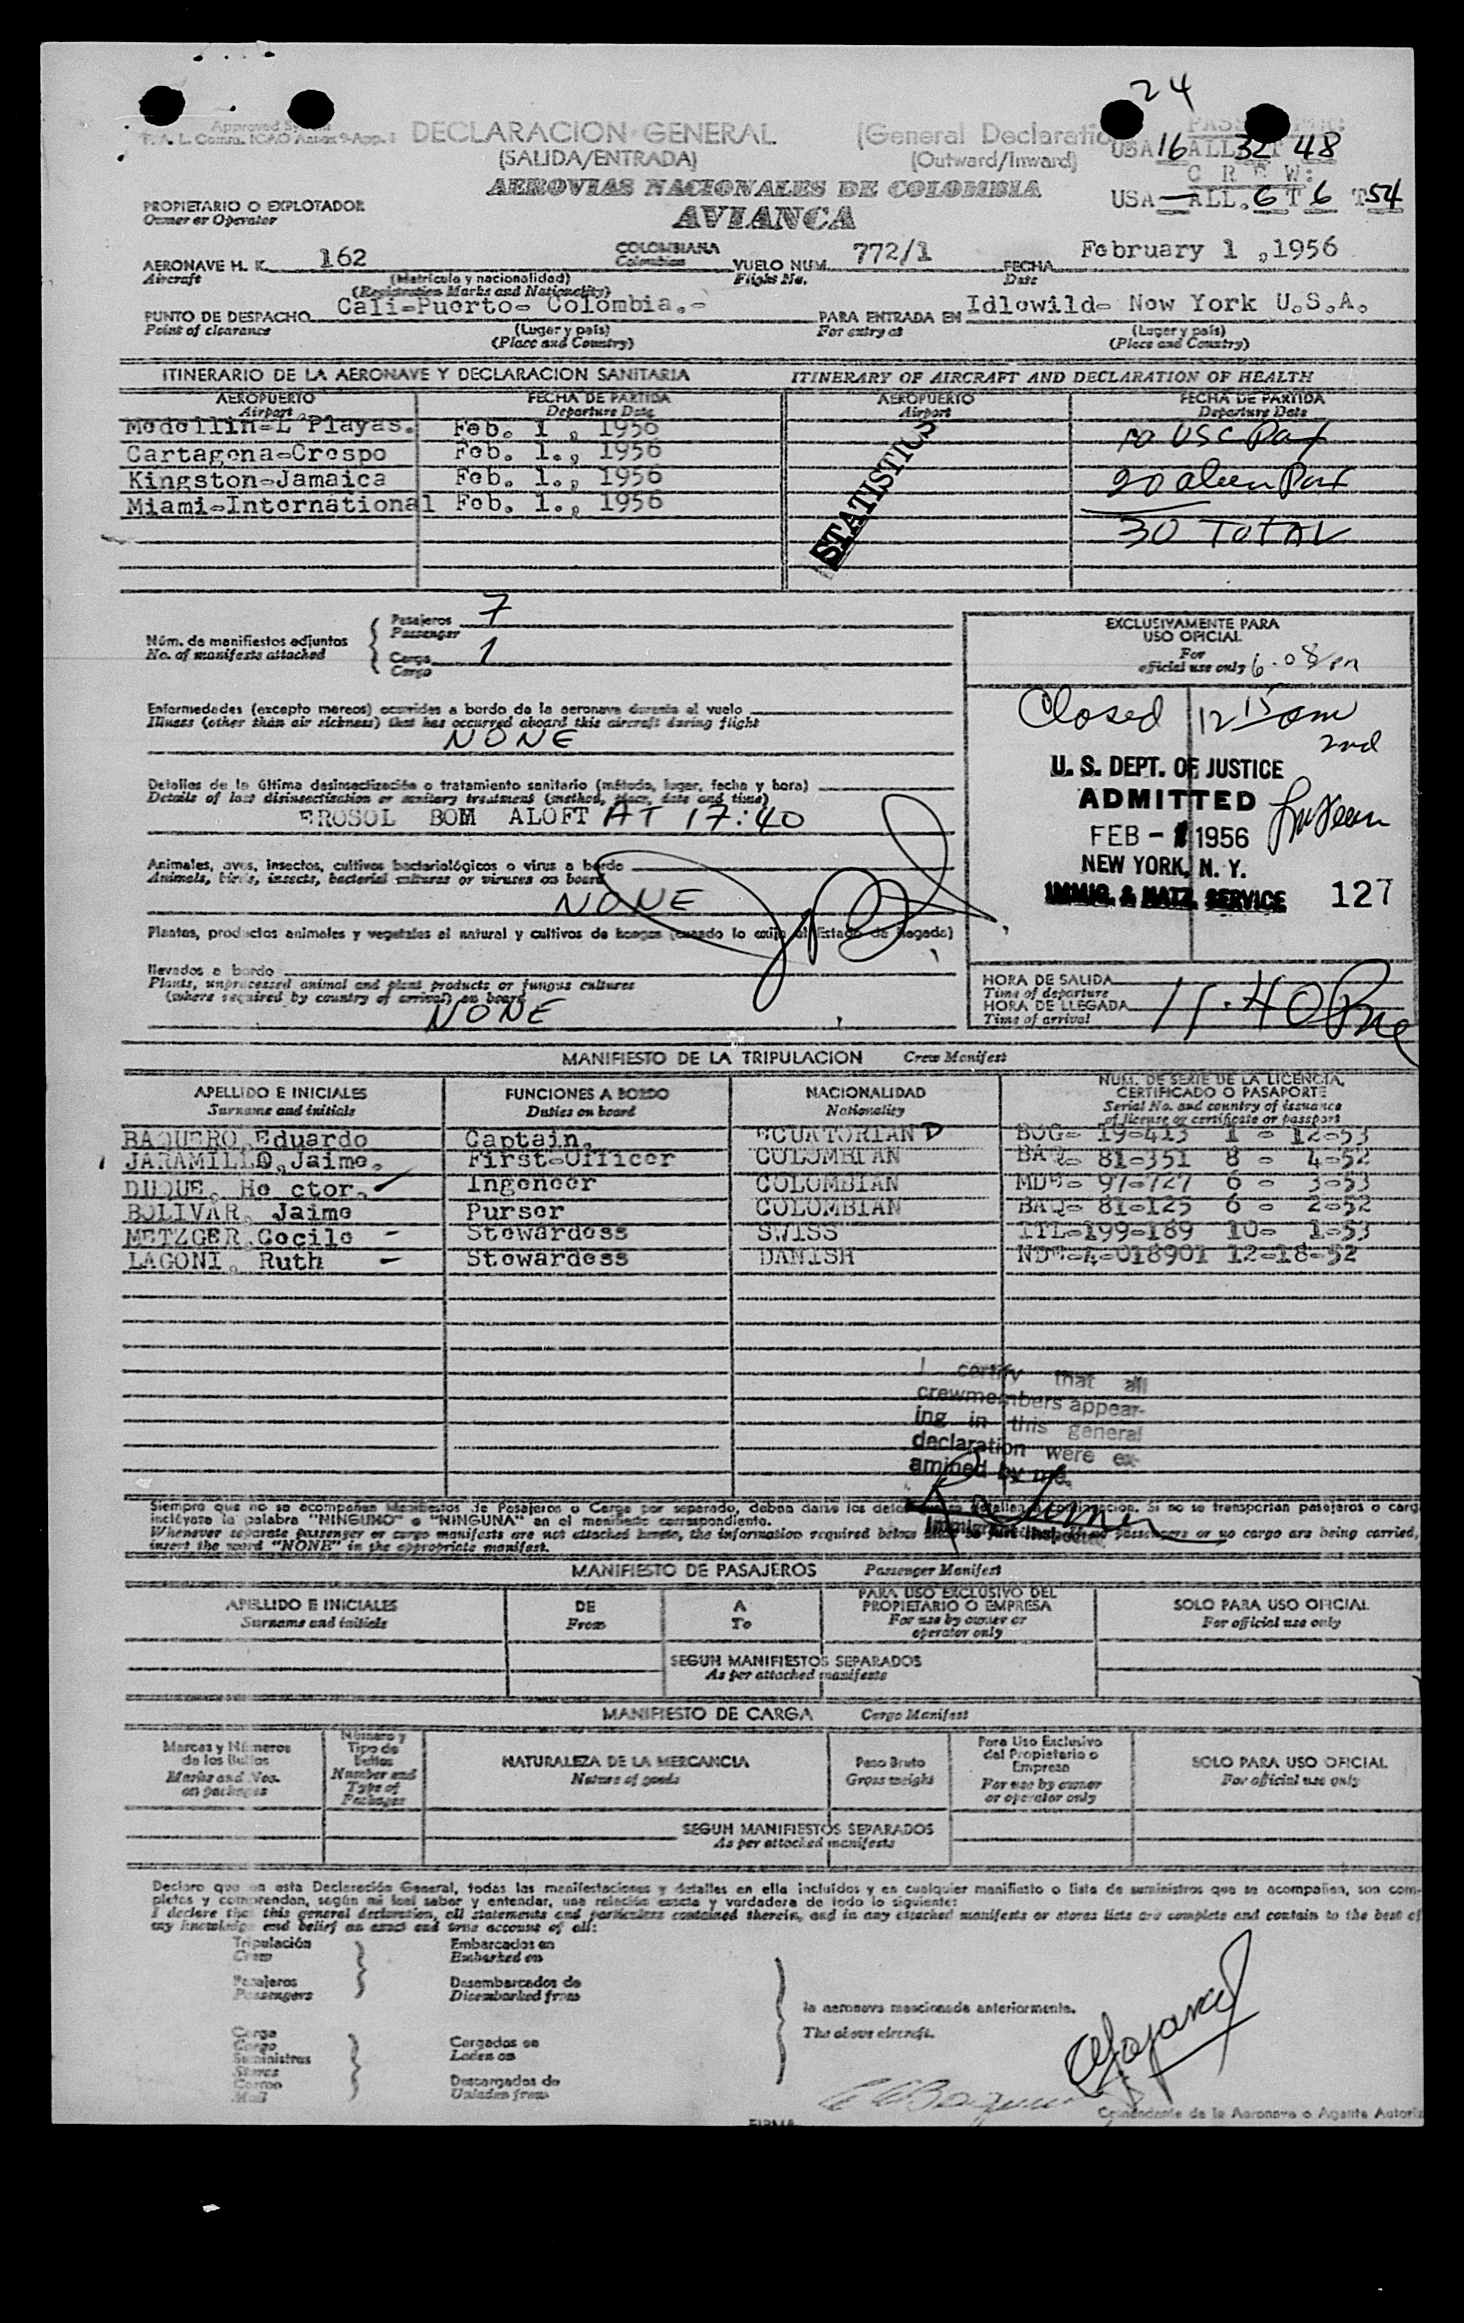 24
Approved by
F. A. L. Comm. ICAO Annex 9-App. 1
DECLARACION GENERAL (General Declaratio
(SALIDA/ENTRADA) (Outward/Inward)
USA 16 ALL 32 T 48
C R E W:
USA — ALL. 6 T 6 T 54
AEROVIAS NACIONALES DE COLOMBIA
AVIANCA
PROPIETARIO O EXPLOTADOR
Owner or Operator
AERONAVE H. K. 162 COLOMBIANA VUELO NUM. 772/1 FECHA February 1 ,1956
Aircraft (Matrícula y nacionalidad) Colombian Flight No. Date
(Registration Marks and Nationality)
PUNTO DE DESPACHO Cali-Puerto- Colombia.- PARA ENTRADA EN Idlewild- New York U.S.A.
Point of clearance (Lugar y país) For entry at (Lugar y país)
(Place and Country) (Place and Country)
ITINERARIO DE LA AERONAVE Y DECLARACION SANITARIA ITINERARY OF AIRCRAFT AND DECLARATION OF HEALTH
AEROPUERTO FECHA DE PARTIDA AEROPUERTO FECHA DE PARTIDA
Airport Departure Date Airport Departure Date
Medellin-L Playas. Feb. 1 , 1956 10 USC Pax
Cartagena-Crespo Feb. 1., 1956
Kingston-Jamaica Feb. 1., 1956 20 alien Pax
Miami-International Feb. 1., 1956
30 TOTAL
STATISTICS
Núm. de manifiestos adjuntos
No. of manifests attached
Pasajeros 7
Passenger
Carga 1
Cargo
EXCLUSIVAMENTE PARA
USO OFICIAL
For
official use only 6.08 pm
Enfermedades (excepto mareos) ocurridas a bordo de la aeronave durante el vuelo
Illness (other than air sickness) that has occurred aboard this aircraft during flight
NONE
Closed 12 15 am
2nd
U. S. DEPT. OF JUSTICE
ADMITTED
FEB - 1 1956
NEW YORK, N. Y.
IMMIG. & NATZ. SERVICE 127
Detalles de la última desinsectización o tratamiento sanitario (método, lugar, fecha y hora)
Details of last disinsectization or sanitary treatment (method, place, date and time)
EROSOL BOM ALOFT AT 17:40
Animales, aves, insectos, cultivos bacteriológicos o virus a bordo
Animals, birds, insects, bacterial cultures or viruses on board
NONE
Plantas, productos animales y vegetales al natural y cultivos de hongos (cuando lo exija el Estado de llegada)
llevados a bordo
Plants, unprocessed animal and plant products or fungus cultures
(where required by country of arrival) on board
NONE
HORA DE SALIDA
Time of departure
HORA DE LLEGADA 11.40 Pm
Time of arrival
MANIFIESTO DE LA TRIPULACION Crew Manifest
APELLIDO E INICIALES FUNCIONES A BORDO NACIONALIDAD NUM. DE SERIE DE LA LICENCIA, CERTIFICADO O PASAPORTE
Surname and initials Duties on board Nationality Serial No. and country of issuance of license or certificate or passport
BAQUERO,Eduardo Captain. ECUATORIAN BOG- 19-413 1 - 12-53
JARAMILLO,Jaime. First-Officer COLOMBIAN BAQ- 81-351 8 - 4-52
DUQUE, He ctor. Ingeneer COLOMBIAN MDE- 97-727 6 - 3-53
BOLIVAR, Jaime Purser COLOMBIAN BAQ- 81-125 6 - 2-52
METZGER,Cecile Stewardess SWISS ITL-199-189 10- 1-53
LAGONI, Ruth Stewardess DANISH NDE-4-018901 12-18-52
I certify that all
crewmembers appear-
ing in this general
declaration were ex-
amined by me.
Immigrant Inspector
Siempre que no se acompañen Manifiestos de Pasajeros o Carga por separado, deben darse los detalles continuacion. Si no se transportan pasajeros o carg
inclúyase la palabra "NINGUNO" o "NINGUNA" en el manifiesto correspondiente.
Whenever separate passenger or cargo manifests are not attached hereto, the information required below passengers or no cargo are being carried,
insert the word "NONE" in the appropriate manifest.
MANIFIESTO DE PASAJEROS Passenger Manifest
APELLIDO E INICIALES DE A PARA USO EXCLUSIVO DEL PROPIETARIO O EMPRESA SOLO PARA USO OFICIAL
Surname and initials From To For use by owner or operator only For official use only
SEGUN MANIFIESTOS SEPARADOS
As per attached manifests
MANIFIESTO DE CARGA Cargo Manifest
Marcas y Números de los Bultos Número y Tipo de Bultos NATURALEZA DE LA MERCANCIA Peso Bruto Para Uso Exclusivo del Propietario o Empresa SOLO PARA USO OFICIAL
Marks and Nos. on packages Number and Type of Packages Nature of goods Gross weight For use by owner or operator only For official use only
SEGUN MANIFIESTOS SEPARADOS
As per attached manifests
Declaro que en esta Declaración General, todas las manifestaciones y detalles en ella incluídos y en cualquier manifiesto o lista de suministros que se acompañen, son com-
pletos y comprenden, según mi leal saber y entender, una relación exacta y verdadera de todo lo siguiente:
I declare that this general declaration, all statements and particulars contained therein, and in any attached manifests or stores lists are complete and contain to the best of
my knowledge and belief an exact and true account of all:
Tripulación Embarcados en
Crew Embarked on
Pasajeros Desembarcados de
Passengers Disembarked from
la aeronave mencionada anteriormente.
The above aircraft.
Carga Cargados en
Cargo Laden on
Suministros
Stores
Correo Descargados de
Mail Unladen from
Comandante de la Aeronave o Agente Autoriz
FIRMA